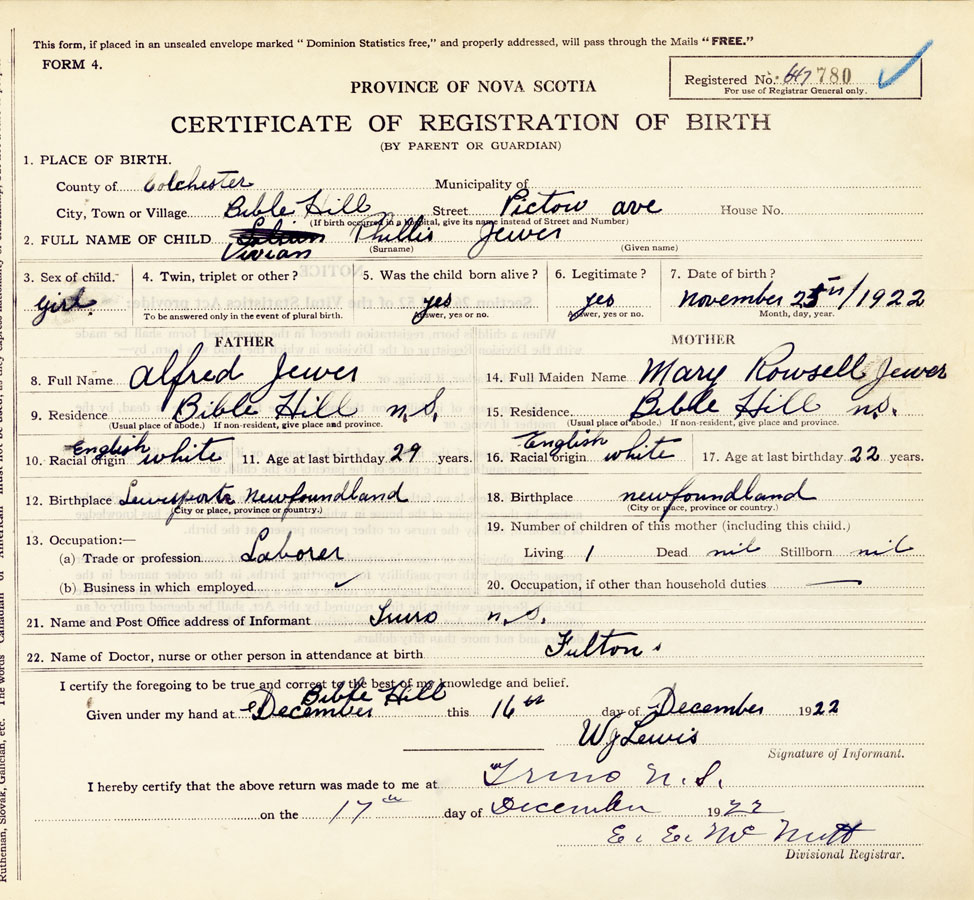 This form, if placed in an unsealed envelope marked “ Dominion Statistics free,” and properly addressed, will pass through the Mails “FREE.”
FORM 4.
Registered No. 780
For use of Registrar General only.
PROVINCE OF NOVA SCOTIA
CERTIFICATE OF REGISTRATION OF BIRTH
(BY PARENT OR GUARDIAN)
1. PLACE OF BIRTH.
County of Colchester Municipality of
City, Town or Village Bible Hill Street Pictow ave House No.
(If birth occurred in a hospital, give its name instead of Street and Number)
2. FULL NAME OF CHILD Phillis Jewer
Vivian (Surname) (Given name)
3. Sex of child. 4. Twin, triplet or other? 5. Was the child born alive? 6. Legitimate? 7. Date of birth?
Girl yes yes November 25th/1922
To be answered only in the event of plural birth. Answer, yes or no. Answer, yes or no. Month, day, year.
FATHER MOTHER
8. Full Name Alfred Jewer 14. Full Maiden Name Mary Rowsell Jewer
9. Residence Bible Hill n.S. 15. Residence. Bible Hill ns.
(Usual place of abode.) If non-resident, give place and province. (Usual place of abode.) If non-resident, give place and province.
English English
10. Racial origin white 11. Age at last birthday 29 years. 16. Racial origin white 17. Age at last birthday 22 years.
12. Birthplace Lewisporte newfoundland 18. Birthplace newfoundland
(City or place, province or country.) (City or place, province or country.)
19. Number of children of this mother (including this child.)
13. Occupation:—
(a) Trade or profession Laborer Living 1 Dead nil Stillborn nil
(b) Business in which employed 20. Occupation, if other than household duties
21. Name and Post Office address of Informant Truro n.S.
22. Name of Doctor, nurse or other person in attendance at birth Fulton
I certify the foregoing to be true and correct to the best of my knowledge and belief.
Bible Hill
Given under my hand at December this 16th day of December 1922
W J Lewis
Signature of Informant.
I hereby certify that the above return was made to me at Truro N.S.
on the 17th day of December 1922
E. E. McNutt
Divisional Registrar.